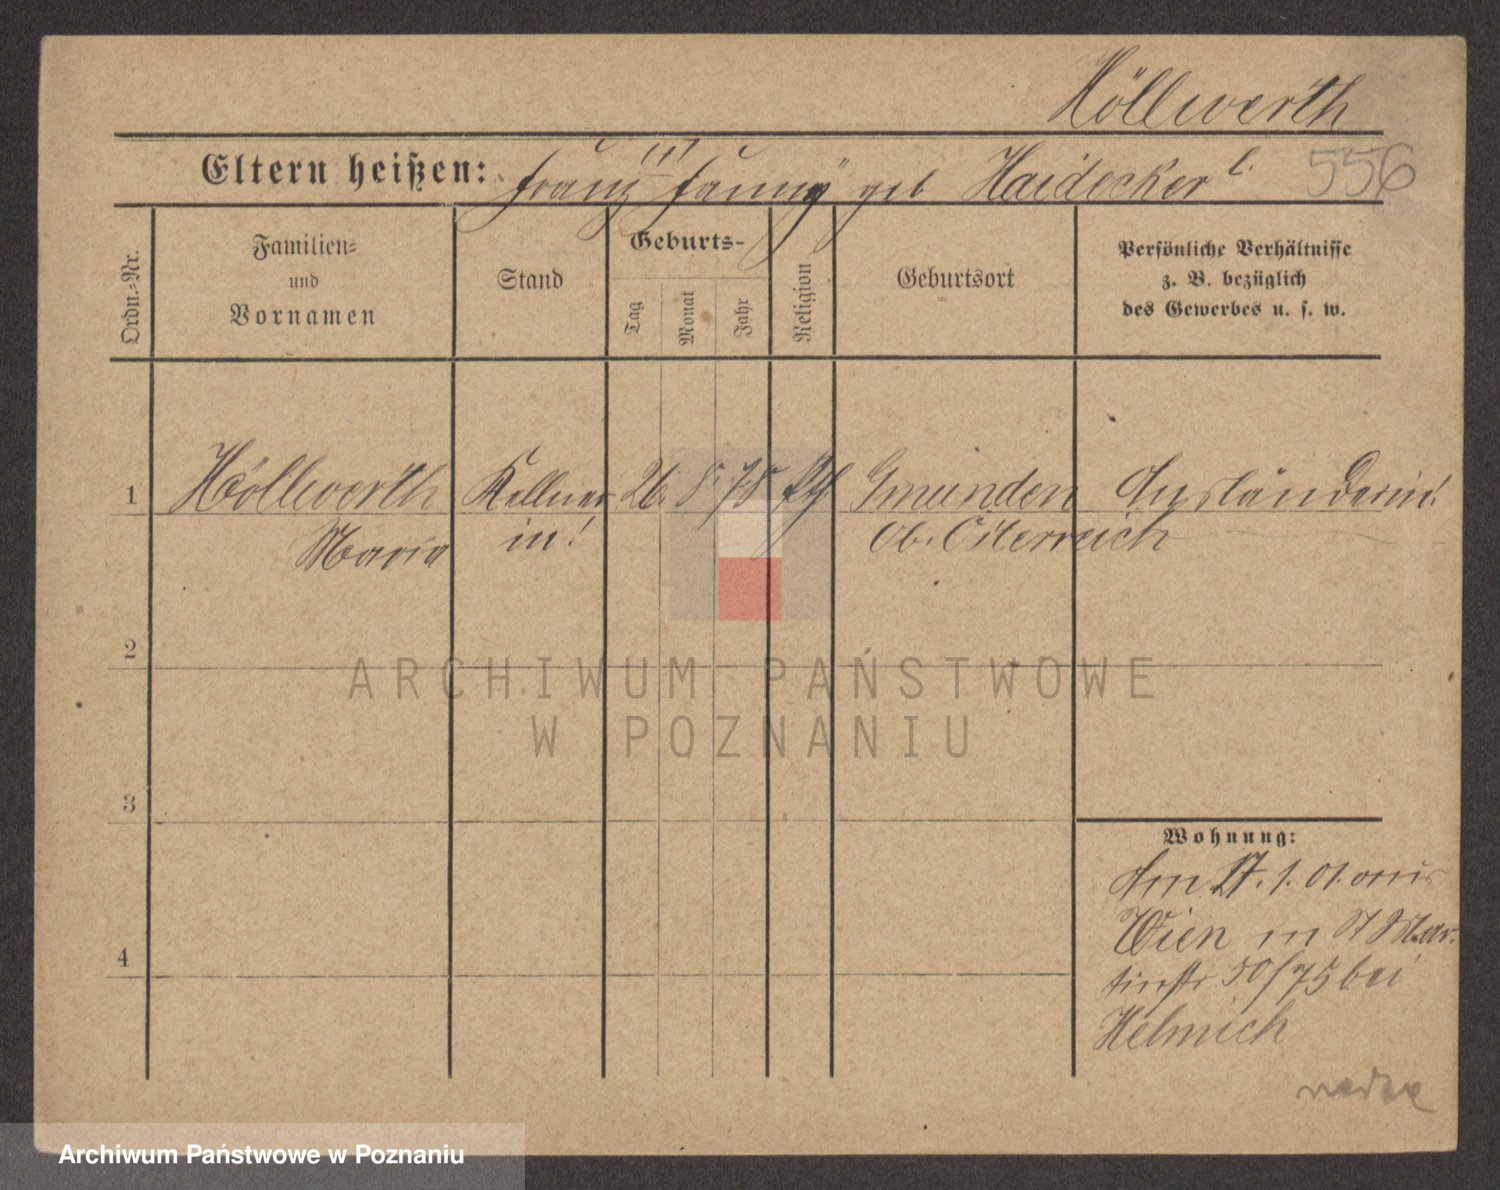 Höllwerth
Eltern heißen: Franz Fanny geb Haidecker l. 556
Ordn.-Nr.
Familien-
und
Vornamen
Stand
Geburts-
Tag
Monat
Jahr
Religion
Geburtsort
Persönliche Verhältnisse
z. B. bezüglich
des Gewerbes u. s. w.
1 Höllwerth Kellner 26. 8. 78 Gmunden Ausländerin!
Maria in! Ob. Österreich
2
ARCHIWUM PAŃSTWOWE
W POZNANIU
3
Wohnung:
Am 17. 1. 01. aus
Wien in St Mar-
tinstr 50/75 bei
4
Helmich
Archiwum Państwowe w Poznaniu